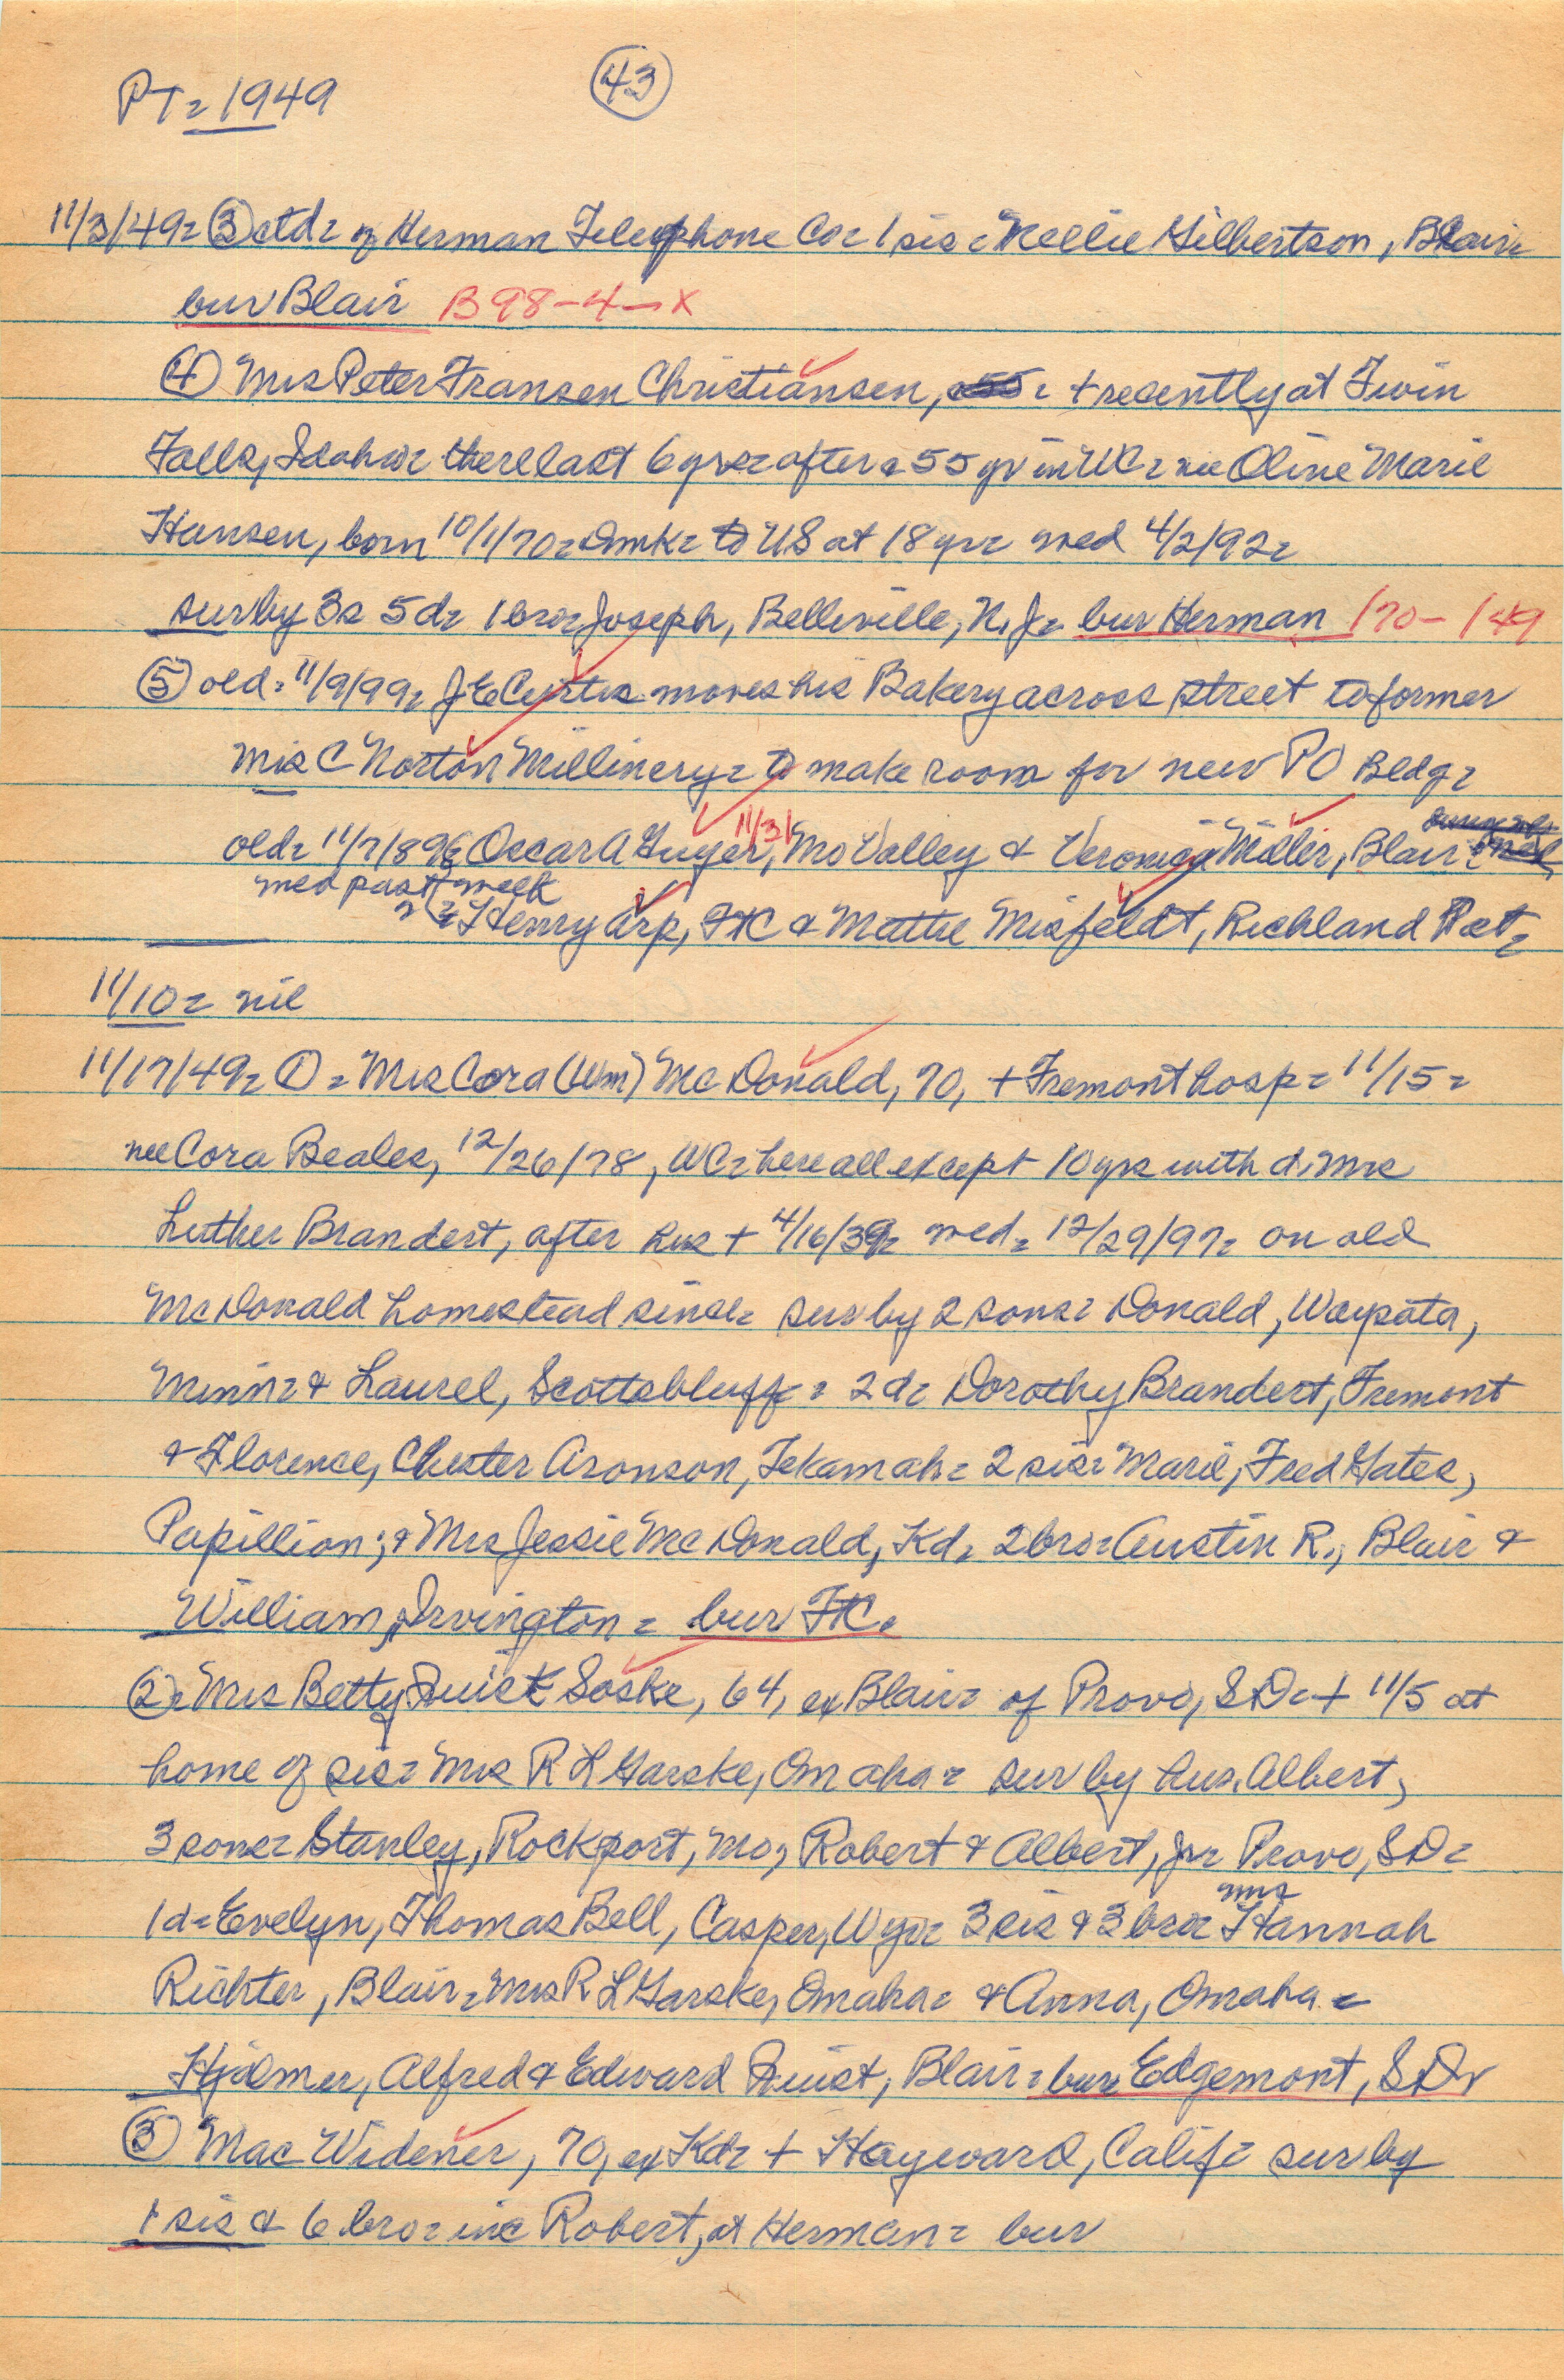 PT = 1949
43
11/3/49 = 3 ctd = of Herman Telephone Co = 1 sis = Nellie Gilbertson, Blair =
bur Blair B98-4-X
4 Mrs Peter Fransen Christiansen, = + recently at Twin
Falls, Idaho = there last 6 yrs = after a 55 yr in WC = nee Oline Marie
Hansen, born 10/1/70 = Dmk = to US at 18 yr = med 4/2/92 =
sur by 3s 5d = 1 bro = Joseph, Belleville, N.J. = bur Herman 170-149
5 old = 11/9/99 = J E Curtis moves his Bakery across street to former
Mrs C Norton Millinery = to make room for new PO Bldg =
old = 11/7/89 = Oscar A Guyer, 11/31 Mo Valley & Veronica Miller, Blair =
med past week
= Henry Arp, FTC & Mattie Misfeldt, Richland Pct =
11/10 = nil
11/17/49 = 1 = Mrs Cora (Wm) McDonald, 70, + Fremont hosp = 11/15 =
nee Cora Beales, 12/26/78, WC = here all except 10 yrs with d. Mrs
Luther Brandert, after hus + 4/16/39 = med = 12/29/97 = on old
McDonald homestead since = sur by 2 sons = Donald, Waypata,
Minn = & Laurel, Scottsbluff = 2d = Dorothy Brandert, Fremont
& Florence, Chester Aronson, Tekamah = 2 sis = Marie, Fred Gates,
Papillion; & Mrs Jessie McDonald, Kd = 2 bro = Austin R., Blair &
William, Irvington = bur FTC.
2 = Mrs Betty Quist Soske, 64, ex Blair = of Provo, S.D. = + 11/5 at
home of sis = Mrs R L Garske, Omaha = sur by hus. Albert,
3 sons = Stanley, Rockport, Mo, Robert & Albert, Jr = Provo, SD =
1d = Evelyn, Thomas Bell, Casper, Wyo = 3 sis & 3 bro = Mrs Hannah
Richter, Blair = Mrs R L Garske, Omaha = & Anna, Omaha =
Hjalmer, Alfred & Edward Quist, Blair = bur Edgemont, S.D.
3 Mac Widener, 70, ex Kd = + Hayward, Calif = sur by
1 sis & 6 bro = inc Robert, at Herman = bur